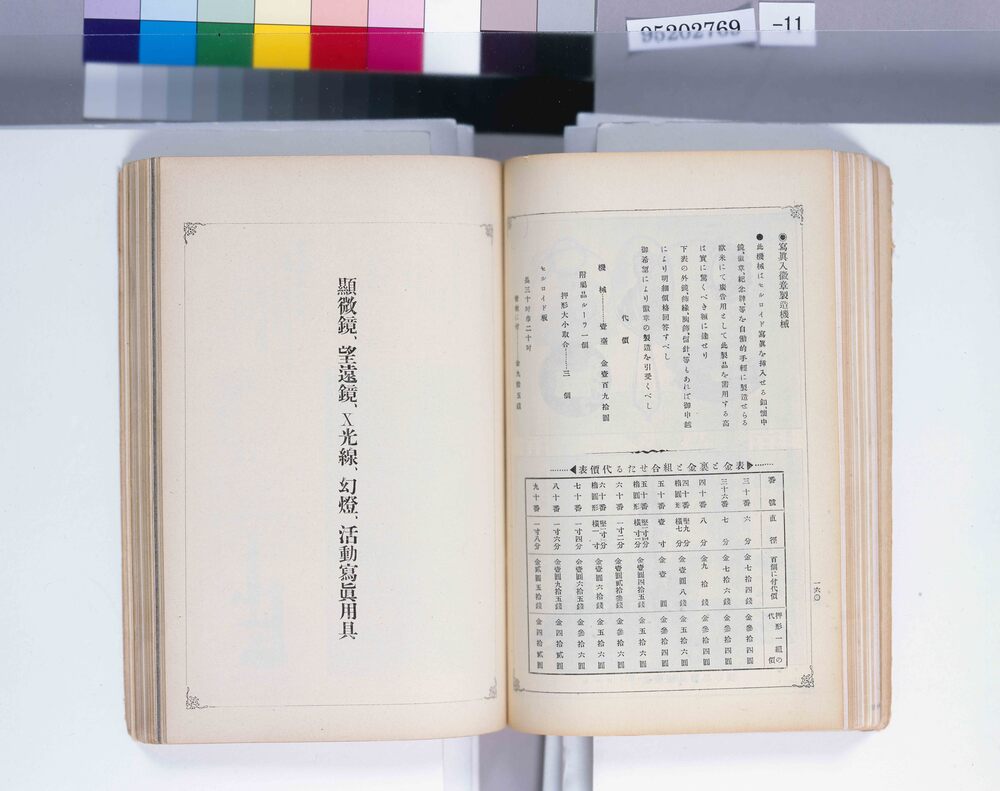 95202769
-11
◉寫眞入徽章製造機械
●此機械はセルロイド寫眞を揷入せる釦、懷中
鏡、徽章、紀念牌、等を自働的手輕に製造せらる
歐米にて廣告用として此製品を需用する高
は實に驚くべき額に達せり
下表の外鏡、飾緣、胸飾、留針、等もあれば御申越
により明細價格回答すべし
御希望により徽章の製造を引受くべし
代價
機械………壹臺 金壹百九拾圓
附屬品ルーラ一個
押形大小取合………三個
セルロイド板
長三十吋巾二十吋
表金と裏金と組合せたる代價表
番號 直徑 百個に付代價 押形一組の代價
三十番 六分 金七拾四錢 金參拾四圓
三十六番 七分 金七拾六錢 金參拾四圓
四十番 八分 金九拾錢 金參拾四圓
四十番楕圓形 竪九分橫七分 金壹圓八錢 金五拾六圓
五十番 壹寸 金壹圓 金參拾四圓
五十番楕圓形 金壹圓四拾五錢 金五拾六圓
六十番 一寸二分 金壹圓貳拾參錢 金參拾六圓
六十番楕圓形 金壹圓六拾錢 金五拾六圓
七十番 一寸四分 金壹圓六拾五錢 金參拾六圓
八十番 一寸六分 金壹圓九拾五錢 金四拾貳圓
九十番 一寸八分 金貳圓五拾錢 金四拾貳圓
一六〇
顯微鏡、望遠鏡、X光線、幻燈、活動寫眞用具